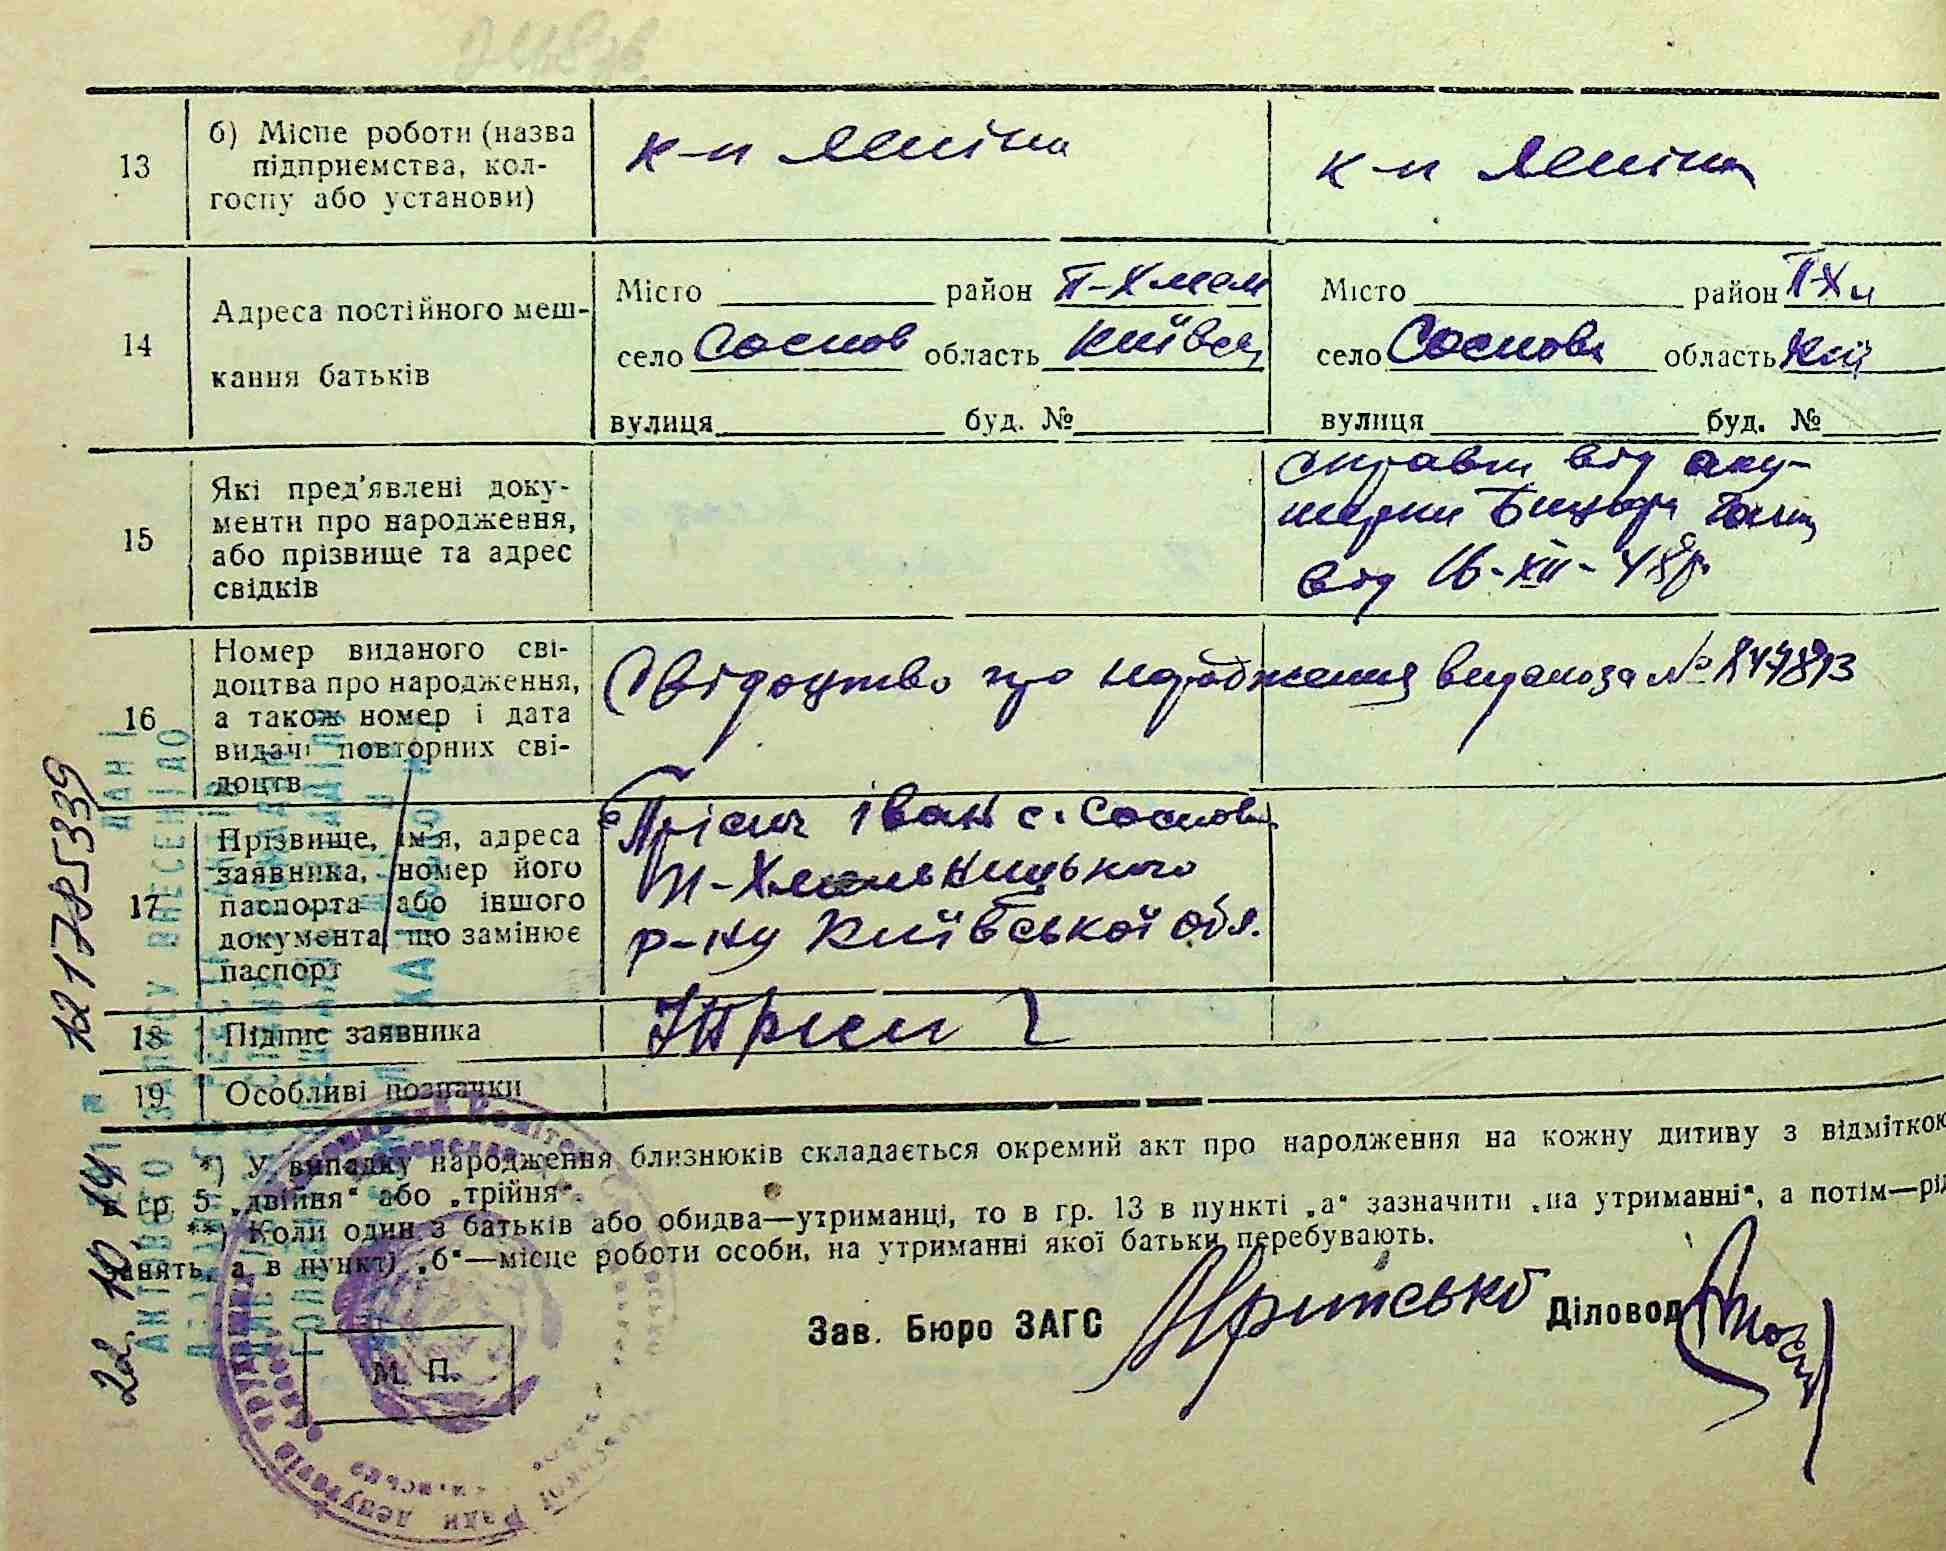 13
б) Місце роботи (назва
підприємства, кол-
госпу або установи)
к-п Леніна
к-п Леніна
14
Адреса постійного меш-
кання батьків
Місто район П-Хмел
село Соснов область Київськ
вулиця буд. №
Місто район П-Хм
село Соснова область Киї
вулиця буд. №
15
Які пред'явлені доку-
менти про народження,
або прізвище та адрес
свідків
справки від аку-
шерки
від 16-XII-48р.
16
Номер виданого сві-
доцтва про народження,
а також номер і дата
видачі повторних сві-
доцтв
Свідоцтво про народження видано за №
17
Прізвище, ім'я, адреса
заявника, номер його
паспорта або іншого
документа, що замінює
паспорт
Прісич Іван с. Соснова
П-Хмельницького
р-ну Київської обл.
18
Підпис заявника
19
Особливі позначки
*) У випадку народження близнюків складається окремий акт про народження на кожну дитину з відміткою
в гр. 5 „двійня“ або „трійня“.
**) Коли один з батьків або обидва—утриманці, то в гр. 13 в пункті „а“ зазначити „на утриманні“, а потім—рід
занять, а в пункті „б“—місце роботи особи, на утриманні якої батьки перебувають.
Зав. Бюро ЗАГС Діловод
М. П.
121785339
22.10.14
ДАНІ
АКТОВОГО ЗАПИСУ ВНЕСЕНІ ДО